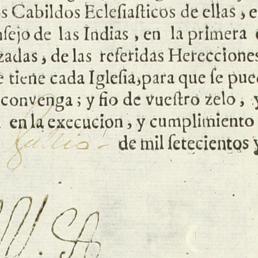 os Cabildos Eclesiasticos de ellas, e
nsejo de las Indias, en la primera
zadas, de las referidas Herecciones
e tiene cada Iglesia, para que se pue
convenga; y fio de vuestro zelo, y
en la execucion, y cumplimiento
Jullio de mil setecientos y